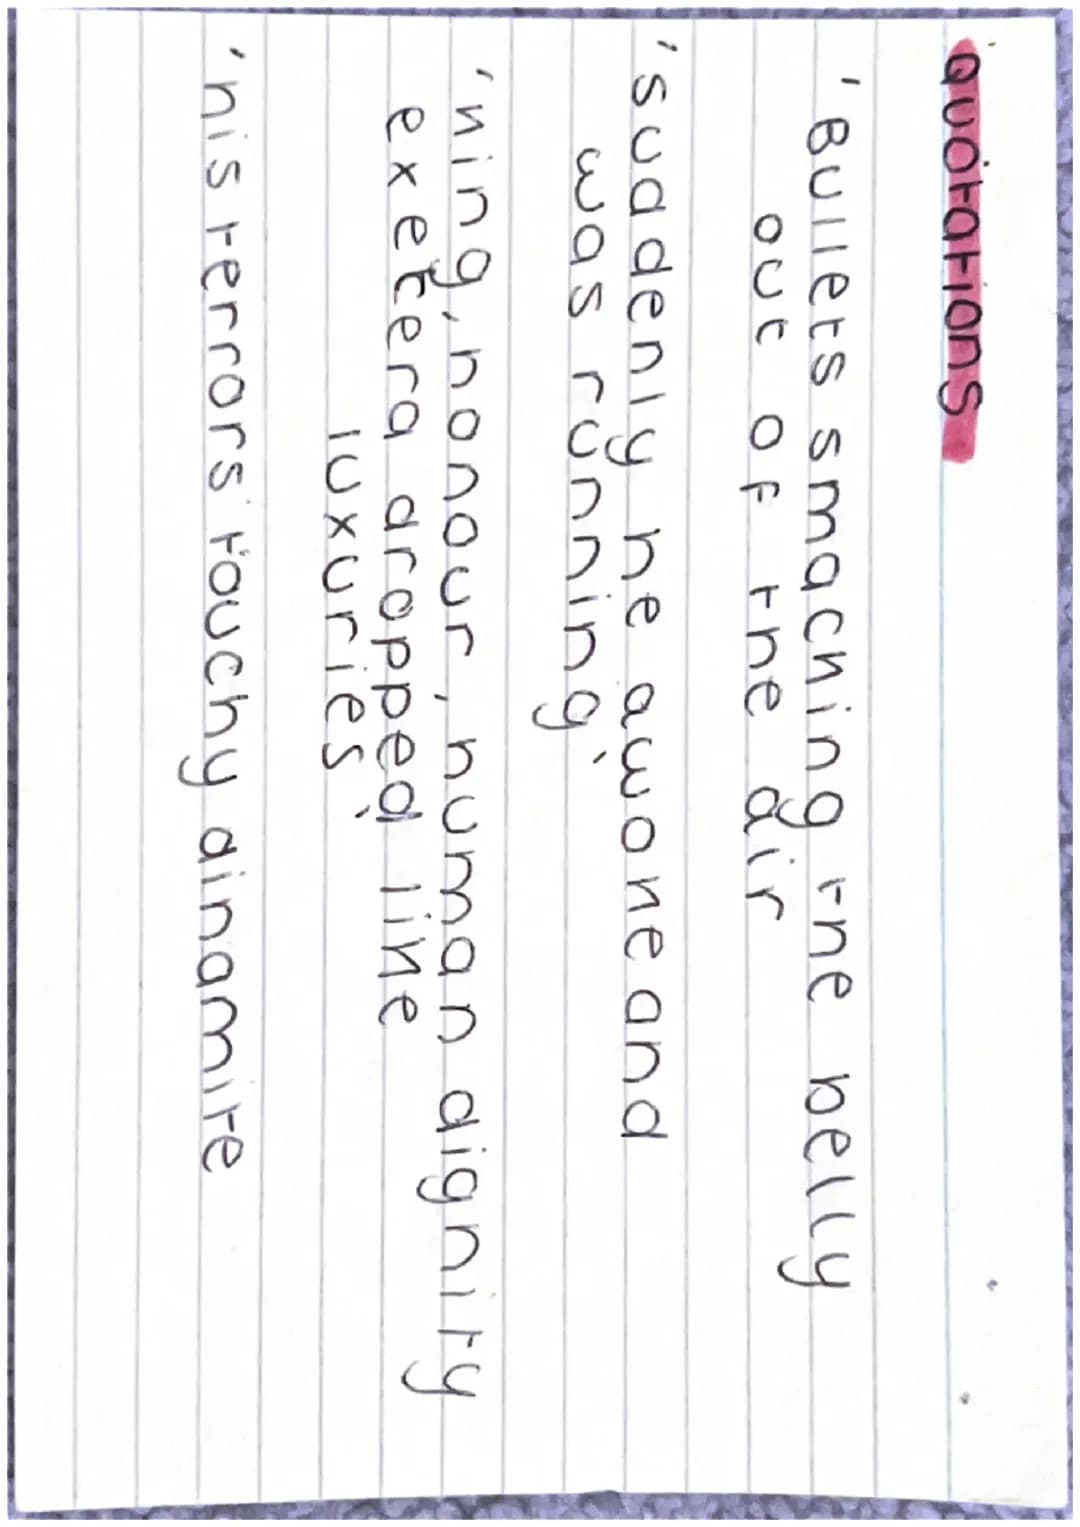 Quotations
'Bullets smacking the belly
out of the air
'suddenly he awoke and
was running'
'king, honour, human dignity
exetera dropped like
luxuries'
'his terrors touchy dinamite